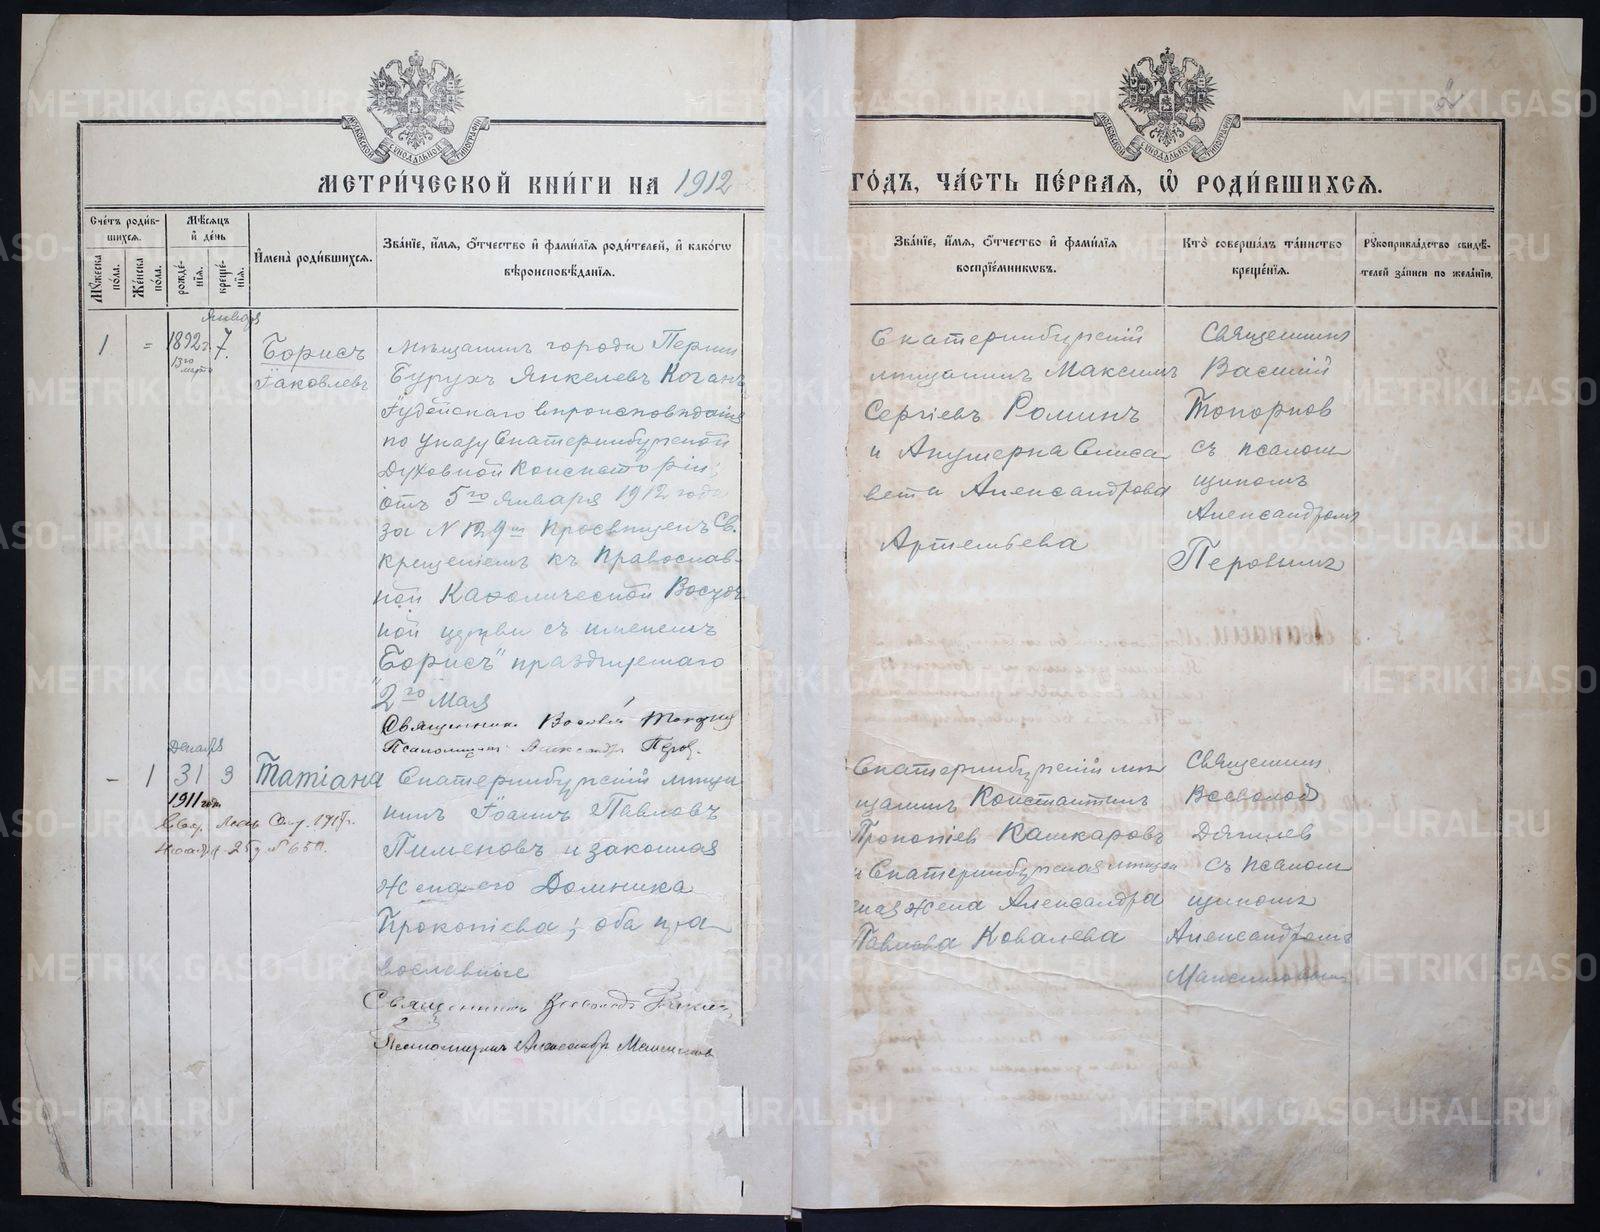 МЕТРИ́ЧЕСКОЙ КНИ́ГИ НА 1912
ГО́ДЪ, ЧА́СТЬ ПЕ́РВАЯ, Ѡ҆ РОДИ́ВШИХСѦ.
МОСКОВСКОЙ СѴНОДАЛЬНОЙ ТИПОГРАФІИ
МОСКОВСКОЙ СѴНОДАЛЬНОЙ ТИПОГРАФІИ
Сче́тъ роди́в-
шихсѧ.
Мꙋ́жеска по́ла.
Же́нска по́ла.
Мѣ́сѧцъ
и҆ де́нь
рожде́нїѧ.
креще́нїѧ.
И҆мена̀ роди́вшихсѧ.
Зва́нїе, и҆́мѧ, ѻ҆́тчество и҆ фами́лїѧ роди́телей, и҆ како́гѡ
вѣроисповѣ́данїѧ.
Зва́нїе, и҆́мѧ, ѻ҆́тчество и҆ фами́лїѧ
воспрїе́мниковъ.
Кто̀ соверша́лъ та́инство
креще́нїѧ.
Рꙋкоприкла́дство свидѣ́-
телей за́писи по жела́нїю.
Января
1
=
1892 г.
13го
марта
7.
Борисъ
Іаковлевъ
мѣщанинъ города Перми
Бурухъ Янкелевъ Коганъ
Іудейскаго вѣроисповѣданія
по указу Екатеринбургской
Духовной Консисторіи
отъ 5го Января 1912 года
за N 129 просвѣщенъ Св.
Крещеніемъ къ Православ-
ной Каѳолической Восточ-
ной церкви съ именемъ
"Борисъ" празднуемаго
2го Мая
Священникъ
Псаломщикъ Александръ Перов.
Екатеринбургскій
мѣщанинъ Максимъ
Сергіевъ Роминъ
и Акушерка Елиса
вета Александрова
Артемьева
Священникъ
Василій
Топорков
съ псалом
щикомъ
Александромъ
Перовымъ
Декабря
-
1
31
3
1911 год.
Татіана
Екатеринбургскій мѣща
нинъ Іоаннъ Павловъ
Пименовъ и законная
жена его Домника
Прокопіева; оба пра
вославные
Священникъ Всеволодъ
Псаломщикъ Александръ
Екатеринбургскій мѣ
щанинъ Константинъ
Прокопіев Кашкаровъ
и Екатеринбургская мѣщан
ская жена Александра
Павлова Ковалева
Священник
Всеволод
Дягилев
съ псалом
щикомъ
Александромъ
METRIKI.GASO-URAL.RU